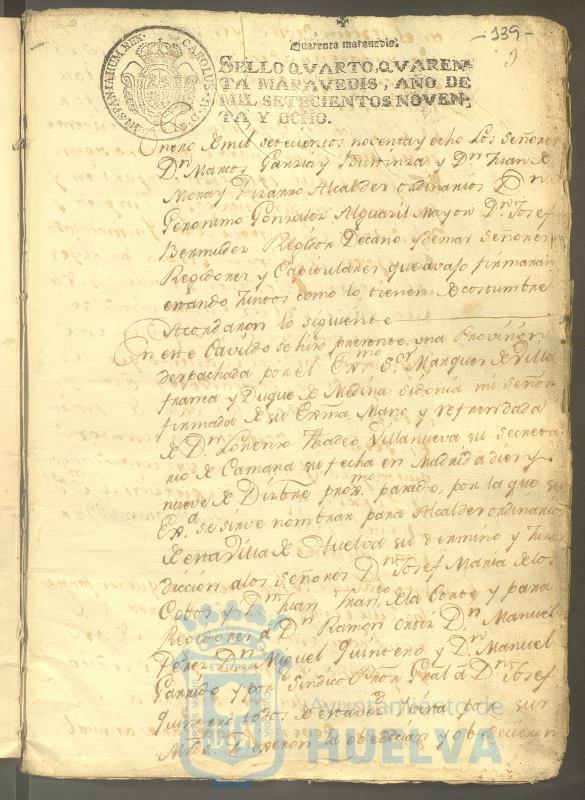 -139-
9
Quarenta maravedis.
SELLO QVARTO, QVAREN-
TA MARAVEDIS, AÑO DE
MIL SETECIENTOS NOVEN-
TA Y OCHO.
CAROLUS IV D G HISPANIARUM REX
Enero de mil setecientos noventa y ocho Los Señores
Dn Marcos Garzia y Dn Juan de
Mora y Pizarro Alcaldes ordinarios Dn
Geronimo Gonzalez Alguacil Mayor Dn Josef
Bermudez Regidor Decano y demas Señores
Regidores y Capitulares que avajo firmaran
estando Juntos como lo tienen de costumbre
Acordaron lo siguiente
En este Cavildo se hizo presente una Provision
despachada por el Exmo Sor Marques de Villa
franca y Duque de Medina Sidonia mi Señor
firmada de su Exma Mano y refrendada
de Dn Lorenzo Thadeo Villanueva su Secreta
rio de Camara su fecha en Madrid a diez y
nueve de Dizbre proxmo pasado, por la que su
Exa se sirve nombrar para Alcaldes ordinarios
de esta Villa de Huelva su termino y Juris
diccion a los Señores Dn Josef Maria de los
Cobos y Dn Juan Franco de la Corte y para
Regidores a Dn Ramon Ortiz Dn Manuel
Perez Dn Miguel Quintero y Dn Manuel
Garrido y por Sindico Pror Gral a Dn Josef
Quintero todos de esta vecd por sus
la obedecian y obedecieron
Ayuntamiento de
HUELVA